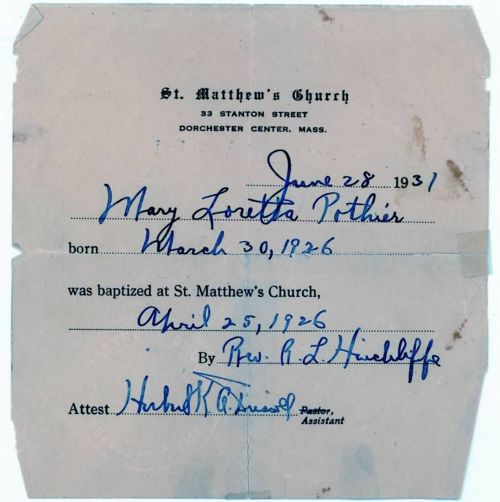 St. Matthew's Church
33 STANTON STREET
DORCHESTER CENTER, MASS.
June 28 1931
Mary Loretta Pothier
born March 30, 1926
was baptized at St. Matthew's Church,
April 25, 1926
By Rev. R. L. Hinchliffe
Attest Herbert K. A. Driscoll Pastor, Assistant